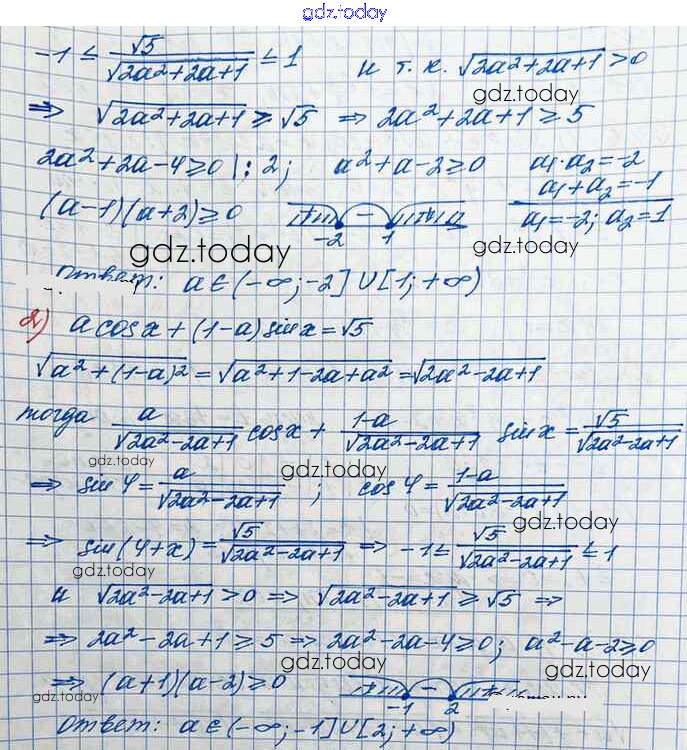 gdz.today
-1 ≤ √5/√(2a²+2a+1) ≤ 1 и т.к. √(2a²+2a+1) > 0
gdz.today
⇒ √(2a²+2a+1) ≥ √5 ⇒ 2a²+2a+1 ≥ 5
2a²+2a-4 ≥ 0 |:2; a²+a-2 ≥ 0 a₁·a₂ = -2
a₁+a₂ = -1
(a-1)(a+2) ≥ 0 + - + -2 1 a₁ = -2; a₂ = 1
gdz.today
Ответ: a ∈ (-∞; -2] ∪ [1; +∞)
2) a cos x + (1-a) sin x = √5
√(a²+(1-a)²) = √(a²+1-2a+a²) = √(2a²-2a+1)
тогда a/√(2a²-2a+1) cos x + (1-a)/√(2a²-2a+1) sin x = √5/√(2a²-2a+1)
gdz.today
gdz.today
⇒ sin φ = a/√(2a²-2a+1); cos φ = (1-a)/√(2a²-2a+1)
gdz.today
⇒ sin(φ+x) = √5/√(2a²-2a+1) ⇒ -1 ≤ √5/√(2a²-2a+1) ≤ 1
gdz.today
и √(2a²-2a+1) > 0 ⇒ √(2a²-2a+1) ≥ √5 ⇒
⇒ 2a²-2a+1 ≥ 5 ⇒ 2a²-2a-4 ≥ 0; a²-a-2 ≥ 0
gdz.today
⇒ (a+1)(a-2) ≥ 0 + - + -1 2
gdz.today
Ответ: a ∈ (-∞; -1] ∪ [2; +∞)
gdz.today